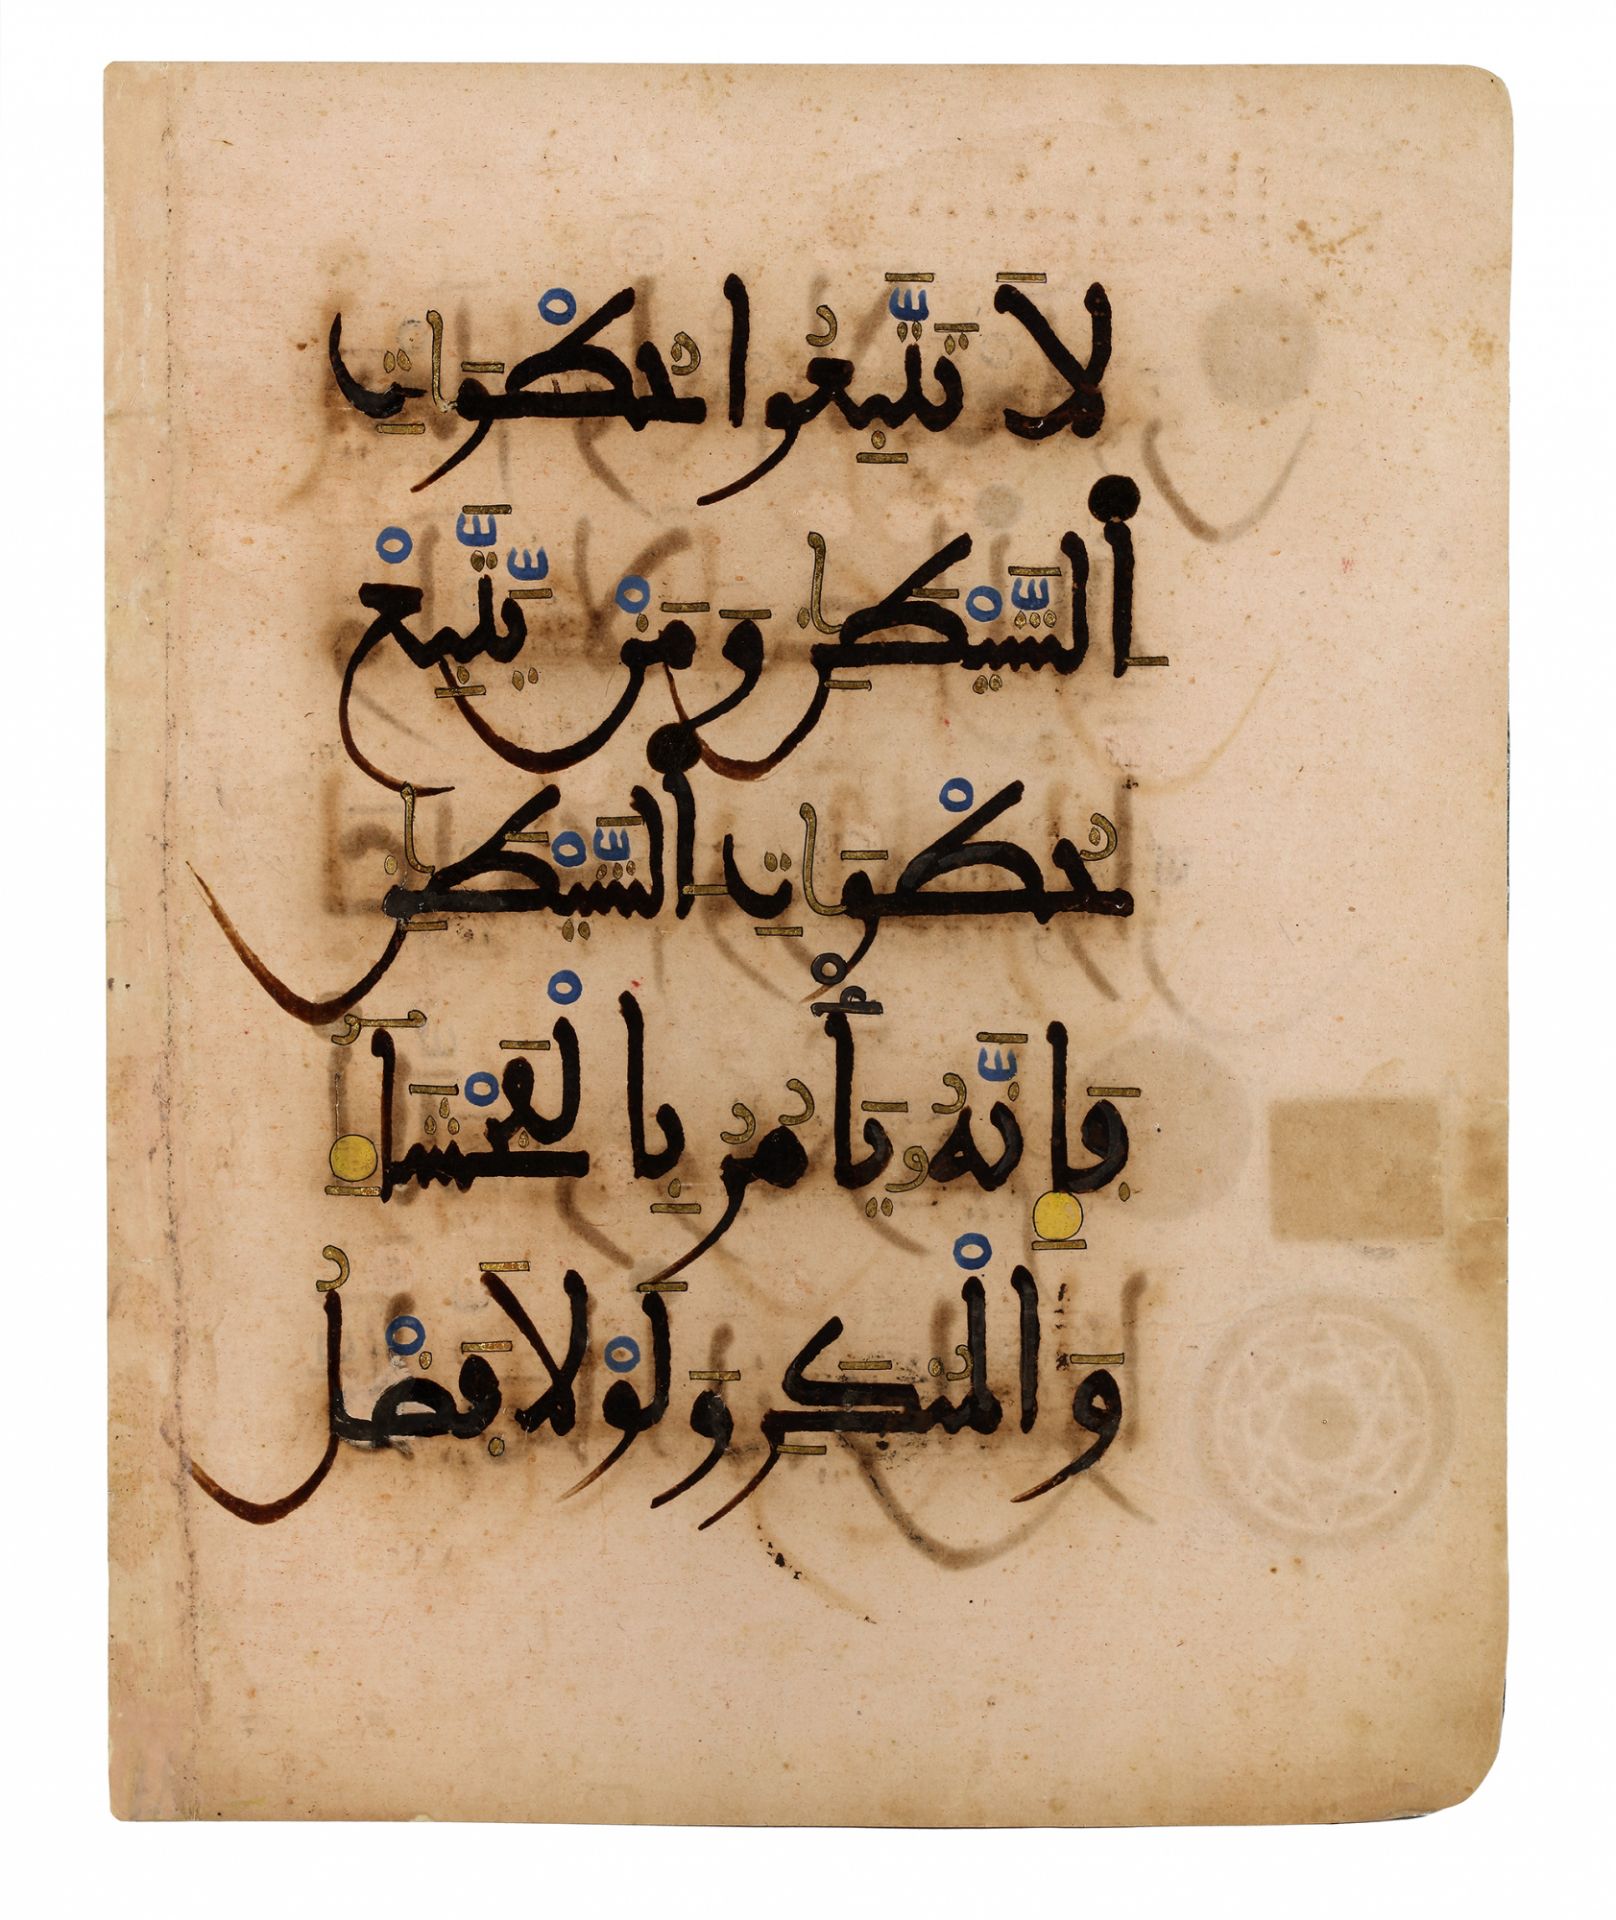 لَا تَتَّبِعُوا خُطْوَٰتِ
اَ۬لشَّيْطَٰنِ وَمَنْ يَّتَّبِعْ
خُطْوَٰتِ اِ۬لشَّيْطَٰنِ
فَإِنَّهُۥ يَأْمُرُ بِالْفَحْشَآءِ
وَالْمُنكَرِ وَلَوْلَا فَضْلُ